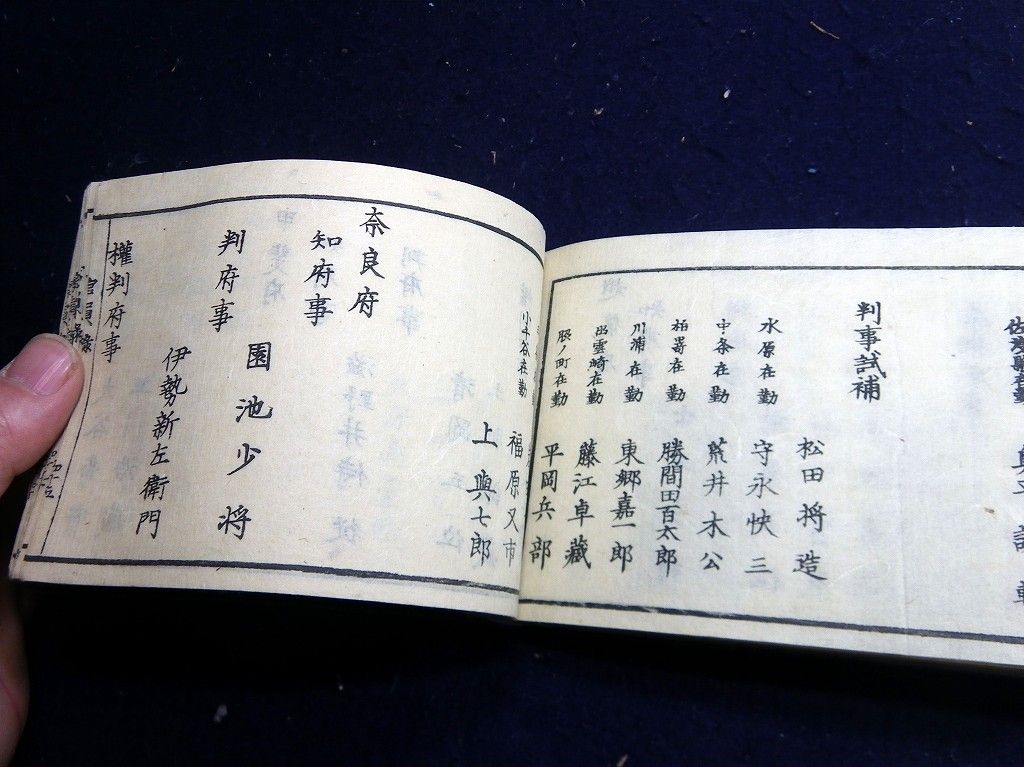 判事試補
松田将造
水原在勤 守永快三
中条在勤 荒井木公
柏嵜在勤 勝間田百太郎
川浦在勤 東郷嘉一郎
出雲崎在勤 藤江卓蔵
脇ノ町在勤 平岡兵部
福原又市
小千谷在勤 上與七郎
奈良府
知府事
園池少将
判府事
伊勢新左衛門
權判府事
官員録